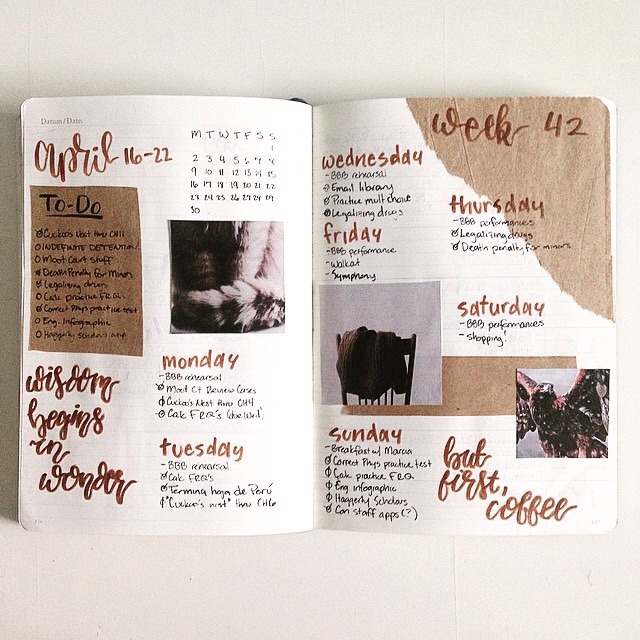 Datum / Date:
april 16-22
M T W T F S S
1
2 3 4 5 6 7 8
9 10 11 12 13 14 15
16 17 18 19 20 21 22
23 24 25 26 27 28 29
30
To-Do
Cuckoo's Nest thru CH11
INDEFINITE DETENTION
Moot Cart stuff
Death Penalty for Minors
Legalizing drugs
Calc practice FRQ's
Correct Phys practice test
Eng. Infographic
Haggerty Scholars app
wisdom
begins
in
wonder
monday
- BBB rehearsal
Moot Ct Review Cases
Cuckoo's Nest thru CH4
Calc FRQ's (due Wed)
tuesday
- BBB rehearsal
Calc FRQ's
Termina hoja de Perú
"Cuckoo's nest" thru CH6
week 42
wednesday
- BBB rehearsal
Email library
Practice mult choice
Legalizing drugs
friday
- BBB performance
- Walkat
- Symphony
thursday
- BBB performances
Legalizing drugs
Death penalty for minors
saturday
- BBB performances
- shopping!
sunday
- Breakfast w/ Marcia
Correct Phys practice test
Calc practice FRQ
Eng infographic
Haggerty Scholars
Con staff apps (?)
but
first,
coffee